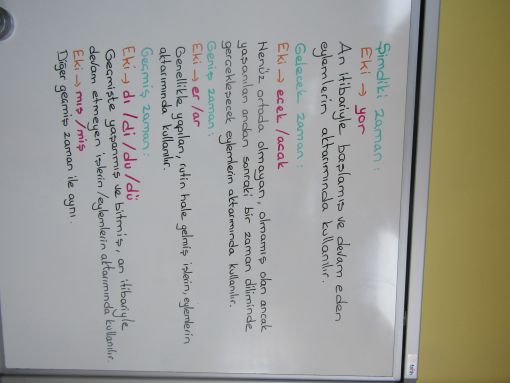 Şimdiki zaman :
Eki → yor
An itibariyle başlamış ve devam eden
eylemlerin aktarımında kullanılır.
Gelecek zaman :
Eki → ecek /acak
Henüz ortada olmayan, olmamış olan ancak
yaşanılan andan sonraki bir zaman diliminde
gerçekleşecek eylemlerin aktarımında kullanılır.
Geniş zaman :
Eki → er/ar
Genellikle yapılan, rutin hale gelmiş işlerin, eylemlerin
aktarımında kullanılır.
Geçmiş zaman :
Eki → dı /di /du /dü
Geçmişte yaşanmış ve bitmiş, an itibariyle
devam etmeyen işlerin/eylemlerin aktarımında kullanılır.
Eki → mış /miş
Diğer geçmiş zaman ile aynı.